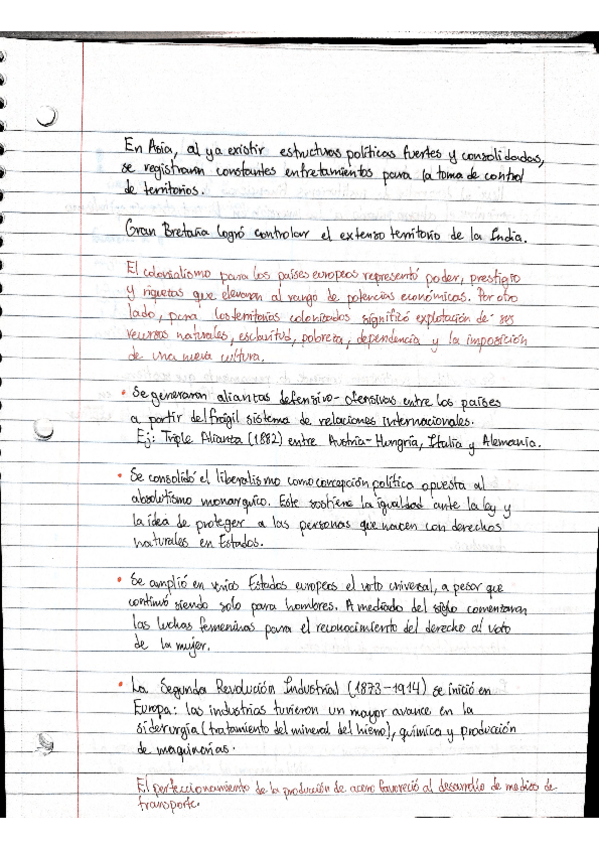 En Asia, al ya existir estructuras políticas fuertes y consolidadas,
se registraron constantes enfretamientos para la toma de control
de territorios.
Gran Bretaña logró controlar el extenso territorio de la India.
El colonialismo para los países europeos representó poder, prestigio
y riquezas que elevaron al rango de potencias económicas. Por otro
lado, para los territorios colonizados significó explotación de sus
recursos naturales, esclavitud, pobreza, dependencia y la imposición
de una nueva cultura.
• Se generaron alianzas defensivo-ofensivas entre los países
a partir del frágil sistema de relaciones internacionales.
Ej: Triple Alianza (1882) entre Austria-Hungría, Italia y Alemania.
• Se consolidó el liberalismo como concepción política opuesta al
absolutismo monarquico. Este sostiene la igualdad ante la ley y
la idea de proteger a las personas que nacen con derechos
naturales en Estados.
• Se amplió en varios Estados europeos el voto universal, a pesar que
continuó siendo solo para hombres. A mediado del siglo comenzaron
las luchas femeninas para el reconocimiento del derecho al voto
de la mujer.
• La Segunda Revolución Industrial (1873-1914) se inició en
Europa: las industrias tuvieron un mayor avance en la
siderurgia (tratamiento del mineral del hierro), química y producción
de maquinarias.
El perfeccionamiento de la producción de acero favoreció al desarrollo de medios de
transporte.